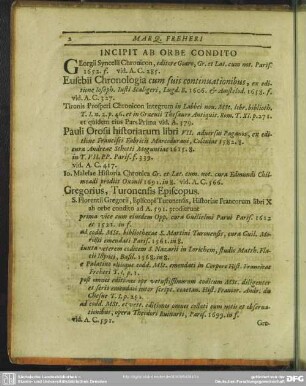 2 MARQ. FREHERI
INCIPIT AB ORBE CONDITO
GEorgii Syncelli Chronicon, editore Goare, Gr. et Lat. cum not. Paris.
1652. f. vid. A. C. 285.
Eusebii Chronologia cum suis continuationibus, ex edi-
tione Joseph. Justi Scaligeri, Lugd. B. 1606. & Amstelod. 1658. f.
vid. A. C. 327.
Tironis Prosperi Chronicon integrum in Labbei nov. MSt. libr. biblioth.
T. I. n. 2. p. 46. et in Graevii Thesauro Antiquit. Rom. T. XI. p. 271.
et quidem eius Pars Prima vid. A. 379.
Pauli Orosii historiarum libri VII. adversus Paganos, ex edi-
tione Francisci Fabricii Marcodurani, Coloniae 1582. 8.
cura Andreae Schotti Moguntiae 1615. 8.
in T. VI. PP. Paris. f. 339.
vid. A. C. 417.
Io. Malelae Historia Chronica Gr. et Lat. cum not. cura Edmundi Chil-
meadi prodiit Oxonii 1691. in 8. vid. A. C. 566.
Gregorius, Turonensis Episcopus.
S. Florentii Gregorii, Episcopi Turonensis, Historiae Francorum libri X
ab orbe condito ad A. 591. prodierunt
prima vice cum eiusdem Opp. cura Guilielmi Parvi Paris. 1512
et 1522. in f.
ad codd. MSt. bibliothecae S. Martini Turonensis, cura Guil. Mo-
relii emendati Paris. 1561. in 8.
iuxta veterem codicem S. Nazarii in Laurisham, studio Matth. Flacii
Illyrici, Basil. 1568. in 8.
e Palatino aliisque codd. MSt. emendati in Corpore Hist. Francicae
Freheri T. I. p. 1.
post omnes editiones ope vetustissimorum codicum MSt. diligenter
et serio emendati inter Script. coaetan. Hist. Francor. Andr. du
Chesne T. I. p. 251.
ad codd. MSt. et vett. editiones omnes collati cum notis et obserua-
tionibus, opera Theodori Ruinarti, Paris. 1699. in f.
vid. A. C. 591.